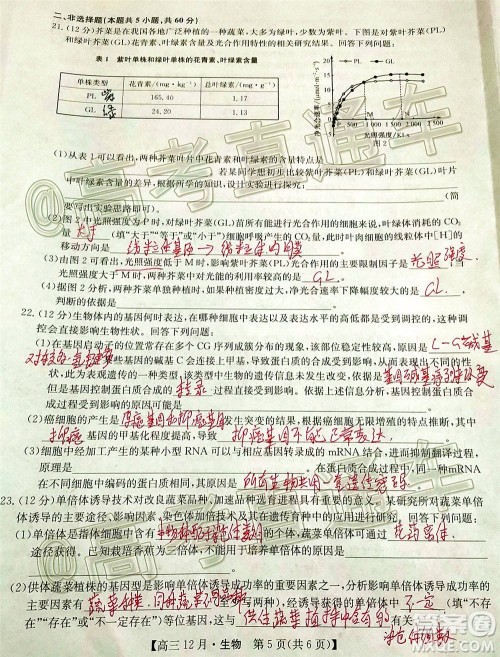 二、非选择题(本题共5小题,共60分)
21.(12分)芥菜在我国各地广泛种植的一种蔬菜,大多为绿叶,少数为紫叶。下图是对紫叶芥菜(PL)
和绿叶芥菜(GL)花青素、叶绿素含量及光合作用特性的相关实验结果。请回答下列问题:
表1 紫叶单株和绿叶单株的花青素、叶绿素含量
单株类型 花青素/(mg·kg⁻¹) 总叶绿素/(mg·kg⁻¹)
PL 紫 165.40 1.17
GL 绿 24.20 1.13
净光合速率/(μmol·m⁻²·s⁻¹)
15
10
5
PL
GL
M
N
500 1 000 1 500 2 000
光照强度/Klx
图2
(1)从表1可以看出,两种芥菜叶片中花青素和叶绿素的含量特点是
若某同学想初步比较紫叶芥菜和绿叶芥菜
中叶绿素含量的差异,根据所学知识,请设计实验,验证以上结论。
(简
要写出实验思路即可)。
(2)图2中光照强度为P时,对紫叶芥菜(PL)苗所有能进行光合作用的细胞来说,叶绿体消耗的CO₂
量 大于 (填“大于”“等于”或“小于”)细胞呼吸产生的CO₂量,此时叶肉细胞的线粒体中[H]的
移动方向是 线粒体基质→线粒体内膜
(3)由图2可看出,光照强度低于M时,影响芥菜(PL)光合作用的主要限制因子是 光照强度
光照强度大于M时,两种芥菜对光能的利用率较高的是 GL 。
(4)据图2分析,两种芥菜的植株,如果种植密度过大,净光合速率下降幅度较大的是 GL 。
判断的依据是
22.(12分)生物体内的基因何时表达,在哪种细胞中表达以及表达水平的高低都是受到调控的,这种调
控会直接影响生物性状。回答下列问题:
(1)在基因启动子的位置常存在多个CG序列成簇分布的现象,该部位稳定性较高,原因是 C-G碱基
对较多,氢键多 某些基因的碱基C会连接上甲基,导致蛋白质的合成受到影响,从而表现出不同的
性状,此现象属于表观遗传,该类型中生物的遗传信息未发生改变,依据是 基因碱基序列未改变
但是基因控制蛋白质合成的 转录 过程受到直接影响,导致蛋白质不能合成,细胞通过这样的
过程影响代谢的原因可能是
(2)癌细胞的产生是 原癌基因和抑癌基因 发生突变的结果。根据癌细胞无限增殖的特点推断,其中
抑癌 基因的甲基化程度提高,导致 抑癌基因不能正常表达
(3)细胞中经常出现的某种小型RNA可以与相关基因转录形成的mRNA结合,进而抑制翻译过程,
原理是 。在蛋白质合成过程中,一种mRNA
在不同细胞中编码的蛋白质相同,原因是 所有生物共用一套遗传密码
23.(12分)单倍体诱导技术对改良蔬菜品种、加速品种选育进程具有重要的意义。某研究所对蔬菜单倍
体诱导的主要途径、影响因素、存在的问题及发展方向等进行了综述分析,请回答下列问题:
(1)单倍体是指体细胞中含有 本物种配子染色体数目 的个体,蔬菜单倍体可通过 花药离体
途径获得。已知大部分单倍体高度不育,其原因是
(2)供体蔬菜植株的基因型是影响单倍体诱导成功率的重要因素之一,分析影响单倍体诱导成功率的
因素有 蔬菜种类、同种蔬菜不同品种 。由单倍体诱导成功获得的单倍体细胞中 不一定
(填“一定”“不一定”或“一定不”)含有等位基因,这与 供体蔬菜植株中含有的 有关
染色体组数
高三12月·生物 第5页(共6页)
@高考直通车